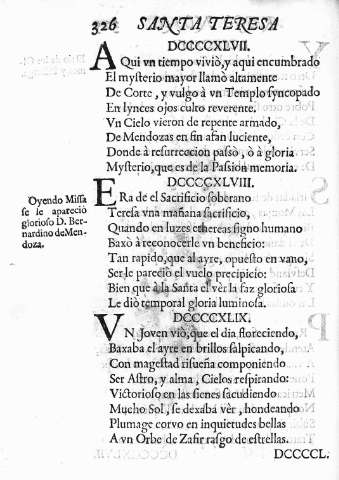 326 SANTA TERESA
DCCCCXLVII.
A Qui vn tiempo viviò, y aqui encumbrado
El mysterio mayor llamò altamente
De Corte, y vulgo à vn Templo syncopado
En lynces ojos culto reverente.
Vn Cielo vieron de repente armado,
De Mendozas en sin afan luciente,
Donde à resurreccion passò, ò à gloria
Mysterio, que es de la Passion memoria.
DCCCCXLVIII.
Oyendo Missa
se le apareciò
glorioso D. Ber-
nardino de Men-
doza.
E Ra de el Sacrificio soberano
Teresa vna mañana sacrificio,
Quando en luzes ethereas signo humano
Baxò à reconocerle vn beneficio:
Tan rapido, que al ayre, opuesto en vano,
Ser le pareciò el vuelo precipicio:
Bien que à la Santa el vèr la faz gloriosa
Le diò temporal gloria luminosa.
DCCCCXLIX.
V N Joven viò, que el dia floreciendo,
Baxaba el ayre en brillos salpicando,
Con magestad risueña componiendo
Ser Astro, y alma, Cielos respirando:
Victorioso en las sienes sacudiendo
Mucho Sol, se dexaba vèr, hondeando
Plumage corvo en inquietudes bellas
A vn Orbe de Zafir rasgo de estrellas.
DCCCCL.